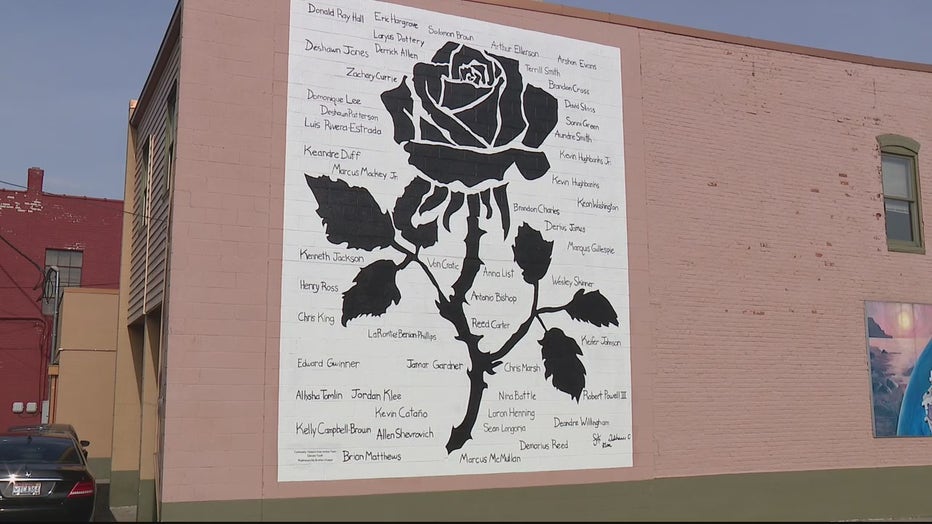 Donald Ray Hall
Eric Hargrove
Solomon Brown
Laryas Dottery
Arthur Ellerson
Deshawn Jones
Derrick Allen
Arshan Evans
Zachary Currie
Terrill Smith
Brandon Cross
Domonique Lee
David Shass
Deshaun Patterson
Sanni Green
Luis Rivera-Estrada
Aundre Smith
Keandre Duff
Kevin Hughbanks Jr.
Marcus Mackey Jr.
Kevin Hughbanks
Keon Washington
Brandon Charles
Derius James
Marquis Gillespie
Kenneth Jackson
Von Cratic
Anna List
Henry Ross
Wesley Skinner
Antonio Bishop
Chris King
Reed Carter
Benson Phillips
Kiefer Johnson
Edward Gwinner
Jamar Gardner
Chris Marsh
Alissha Tomlin
Jordan Klee
Nina Battle
Robert Powell III
Kevin Cataño
Laron Henning
Kelly Campbell-Brown
Allen Shevrovich
Sean Longoria
Deandre Willingham
Demarius Reed
Brian Matthews
Marcus McMullan